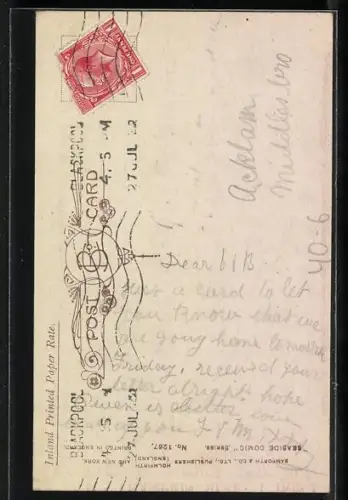 BLACKPOOL
4. 5 PM
27 JUL 22
POST CARD
Inland Printed Paper Rate.
Acklam
Middlesbro
40-6
Dear
a card to let
you know that we
are going home tomorrow
Friday, received your
letter alright hope
is
Blackpool
BAMFORTH & CO., LTD., PUBLISHERS
HOLMFIRTH (ENGLAND)
AND NEW YORK
"SEASIDE COMIC" SERIES.
No. 1267.
PRINTED IN ENGLAND